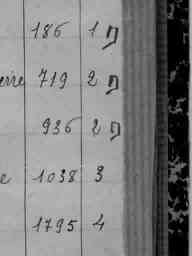 186 1 n
erre 719 2 n
936 2 n
e 1038 3
1795 4